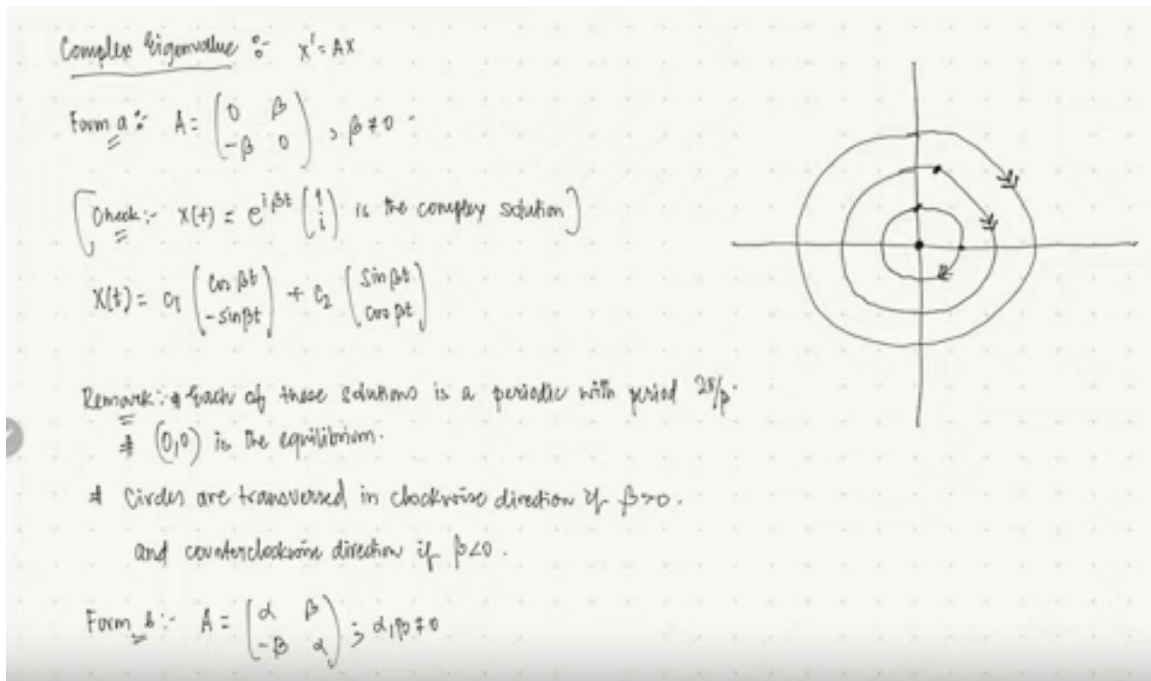 Complex Eigenvalue :- x' = AX
Form a :- A = ( 0 β ; -β 0 ) , β ≠ 0
[Check :- X(t) = e^{iβt} ( 1 ; i ) is the complex solution]
X(t) = c₁ ( cos βt ; -sin βt ) + c₂ ( sin βt ; cos βt )
Remark :- # Each of these solutions is a periodic with period 2π/β.
# (0,0) is the equilibrium.
# Circles are transversed in clockwise direction if β>0.
and counterclockwise direction if β<0.
Form b :- A = ( α β ; -β α ) ; α, β ≠ 0